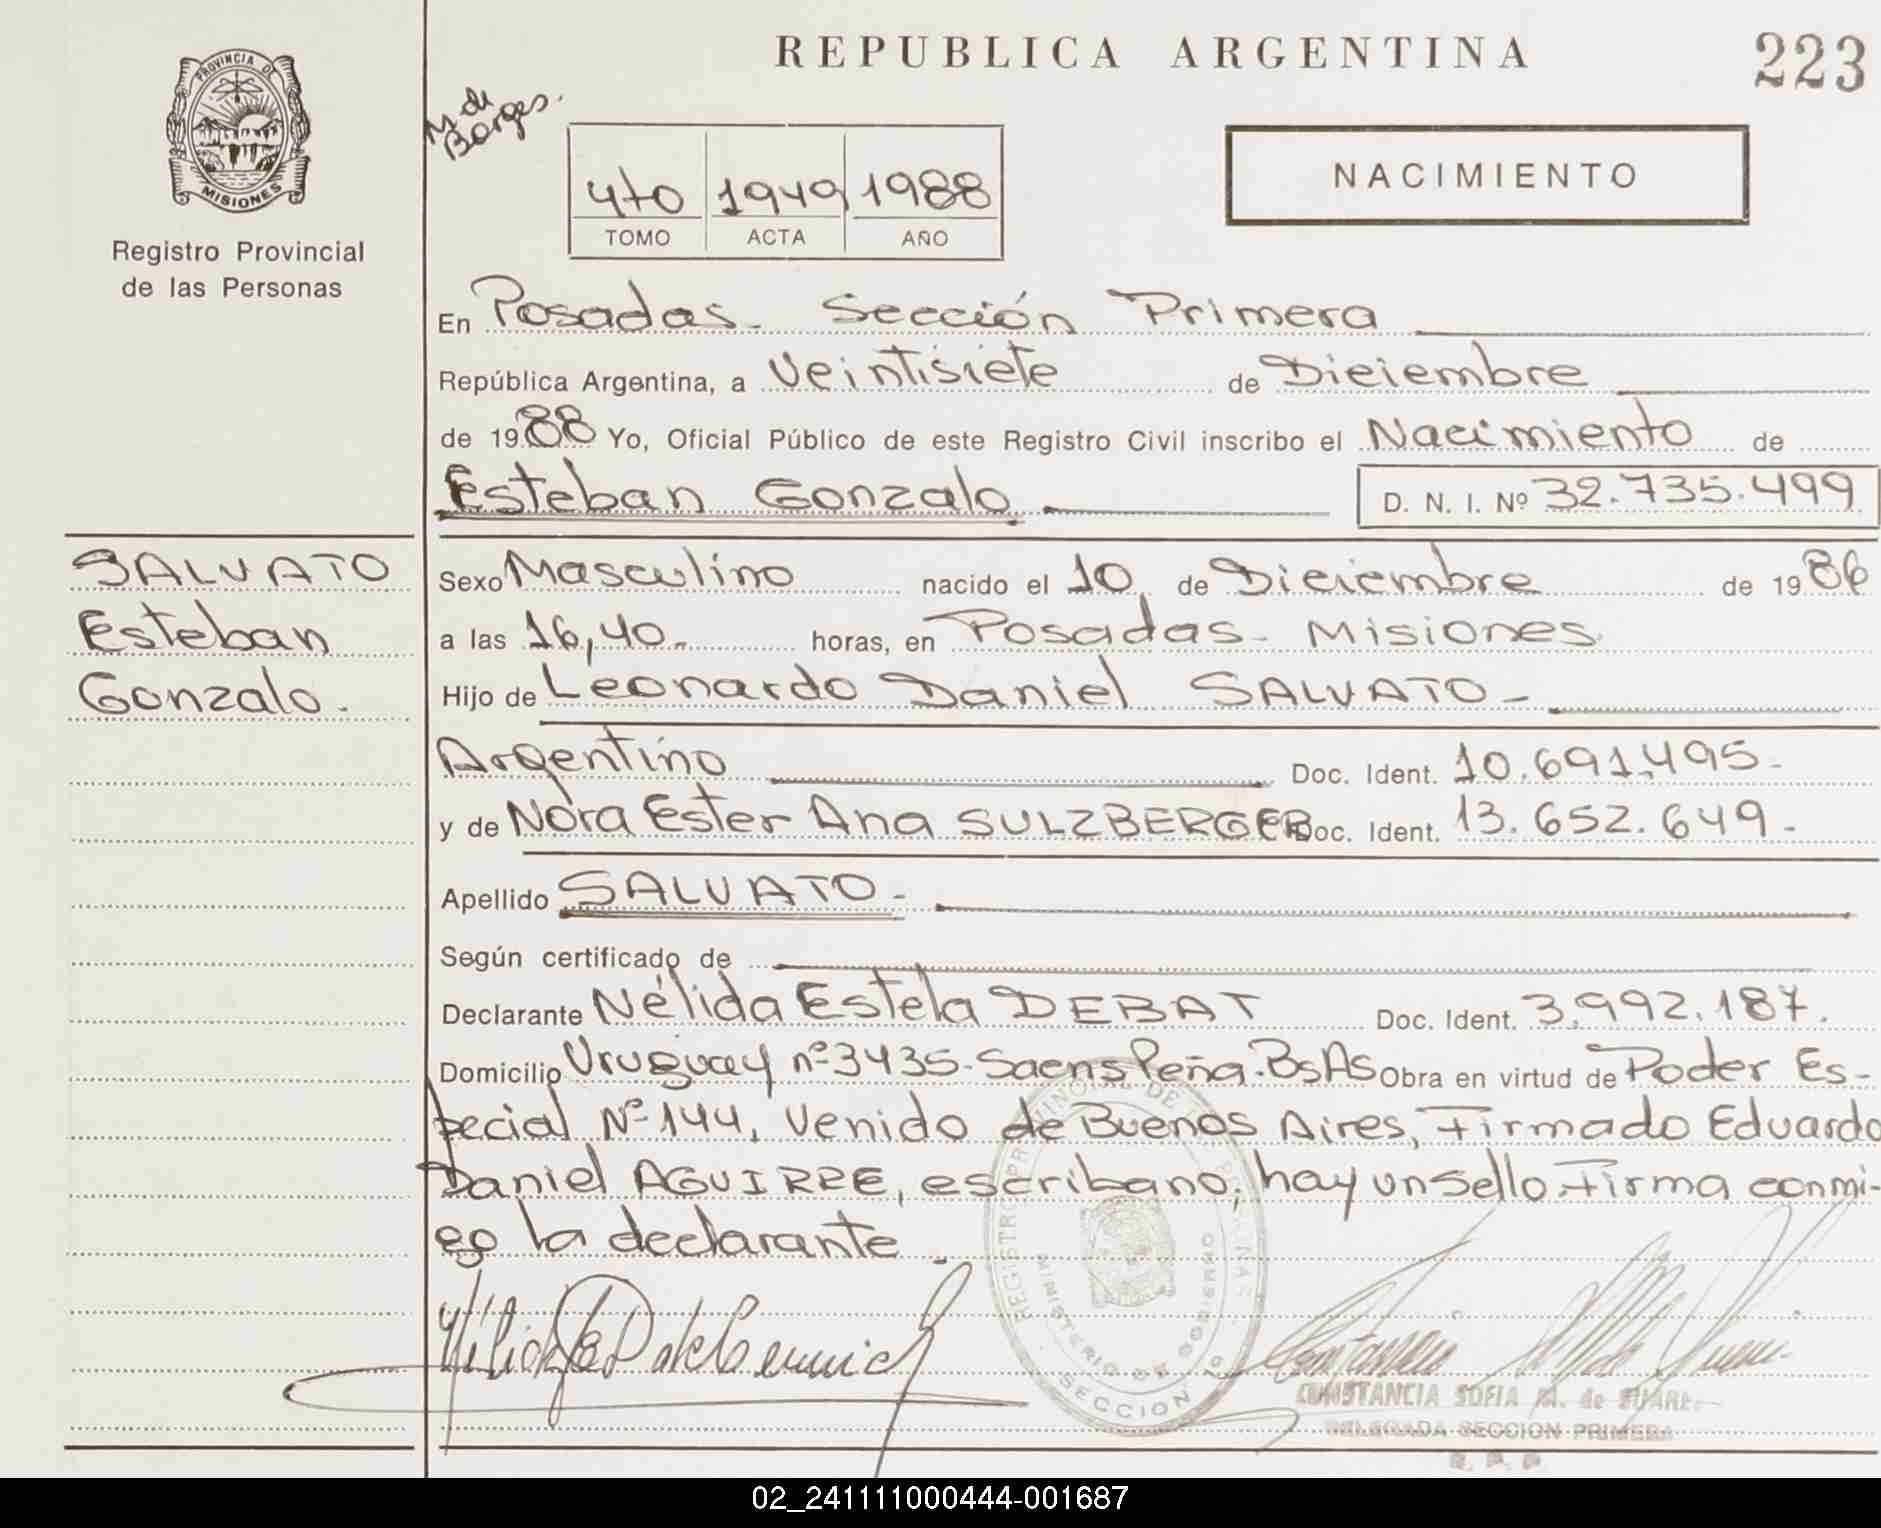 REPUBLICA ARGENTINA
223
PROVINCIA DE
MISIONES
Registro Provincial
de las Personas
M. de
Borges.
4to 1949 1988
TOMO ACTA AÑO
NACIMIENTO
En Posadas - Sección Primera
República Argentina, a Veintisiete de Diciembre
de 1988 Yo, Oficial Público de este Registro Civil inscribo el Nacimiento de
Esteban Gonzalo D. N. I. Nº 32.735.499
SALVATO
Esteban
Gonzalo.
Sexo Masculino nacido el 10 de Diciembre de 1986
a las 16,40.- horas, en Posadas - Misiones
Hijo de Leonardo Daniel SALVATO -
Argentino Doc. Ident. 10.691.495.-
y de Nora Ester Ana SULZBERGER Doc. Ident. 13.652.649.-
Apellido SALVATO.-
Según certificado de
Declarante Nélida Estela DEBAT Doc. Ident. 3.992.187.
Domicilio Uruguay nº 3435- Saens Peña. BsAs Obra en virtud de Poder Es-
pecial Nº 144, Venido de Buenos Aires, Firmado Eduardo
Daniel AGUIRRE, escribano, hay un sello. Firma conmi-
go la declarante.
REGISTRO PROVINCIAL DE LAS PERSONAS
MINISTERIO DE GOBIERNO
SECCION 1ª
CONSTANCIA SOFIA M. de
DELEGADA SECCION PRIMERA
R. P. P.
02_241111000444-001687